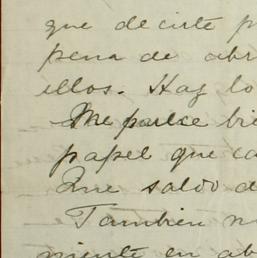 que decirte p
pena de abr
ellos. Haz lo
Me parece bie
papel que ca
Que saldo d
Tambien n
miente en ab